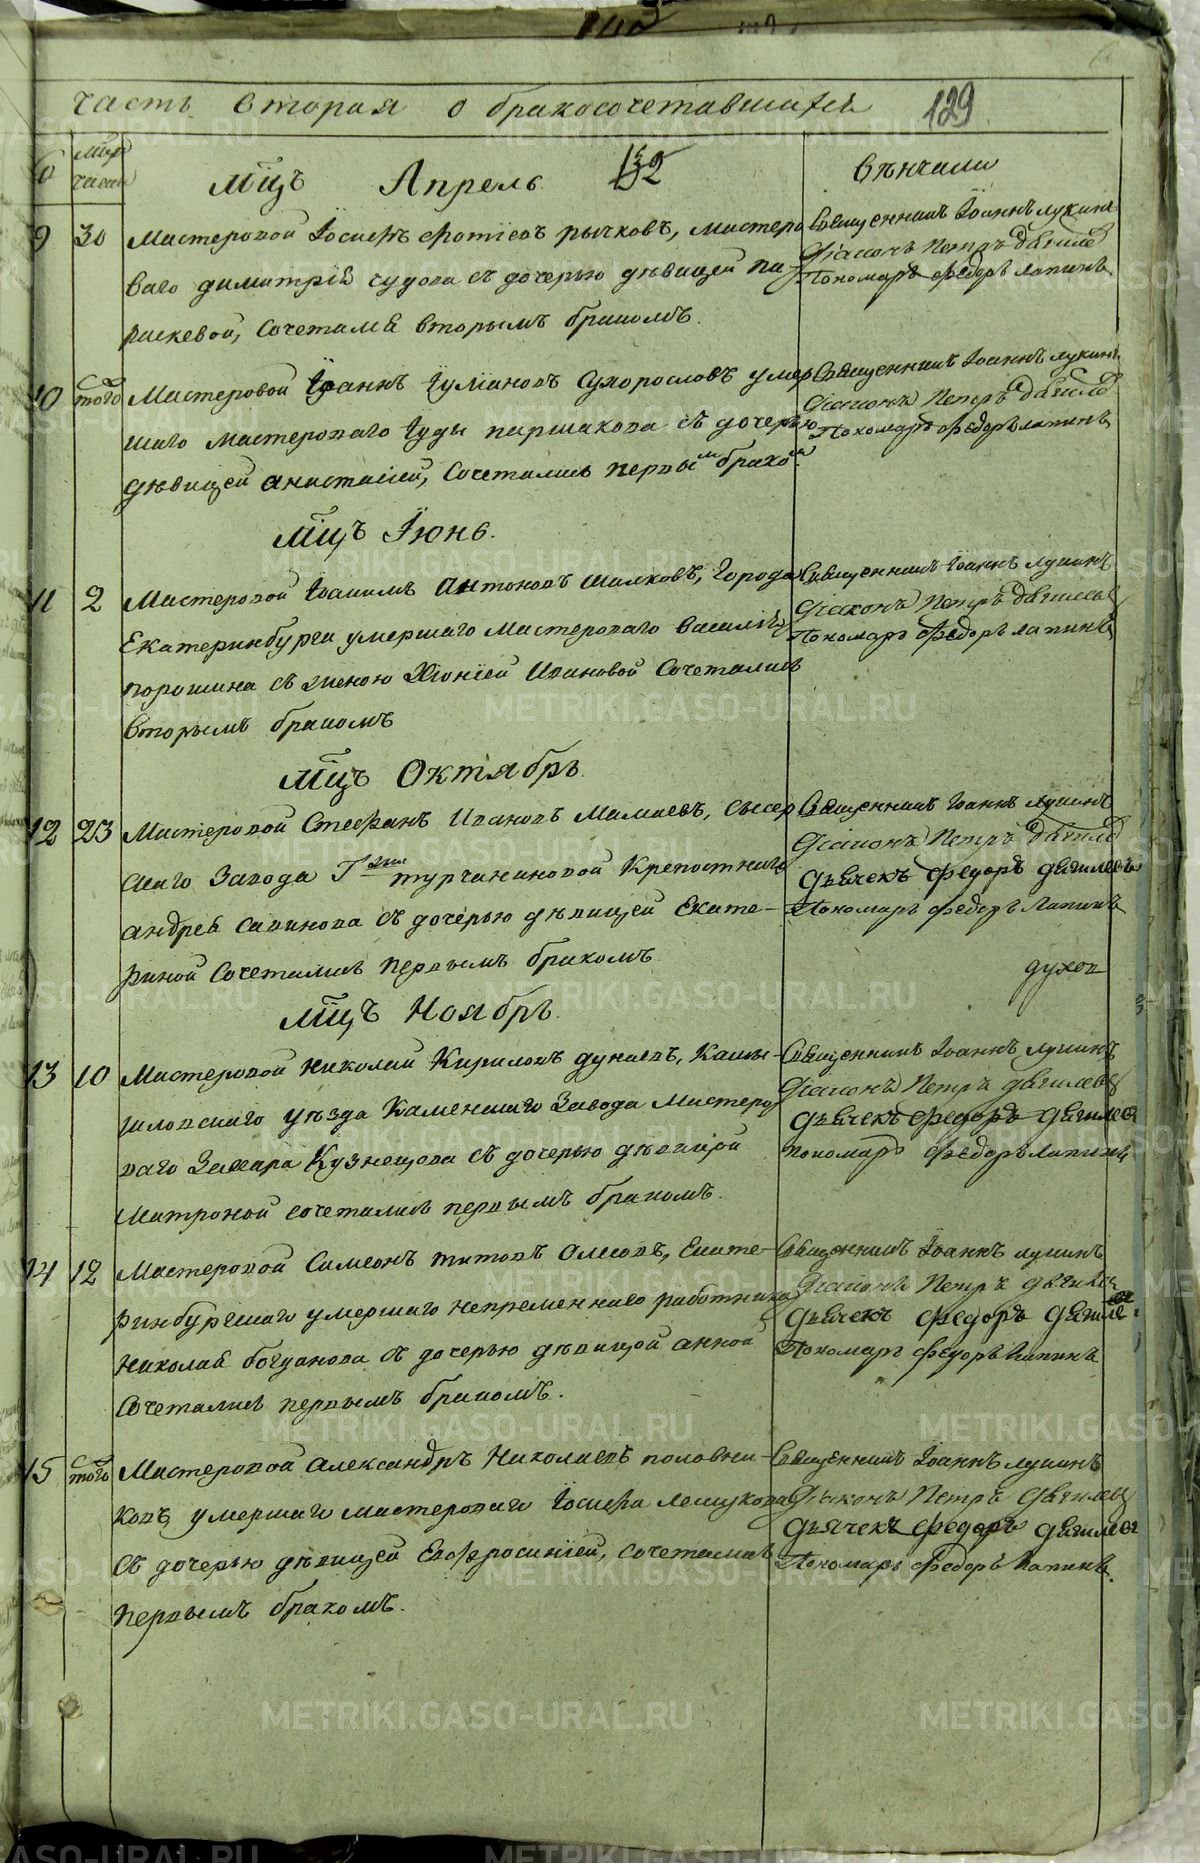 Часть вторая о бракосочетавшихся 129
мцъ
числа
Мцъ Апрель
132
Вѣнчали
9 30 Мастеровой Іосифъ Фотіевъ рычковъ, мастеро
ваго димитрія чудова съ дочерью дѣвицей па-
раскевой, сочетался вторымъ бракомъ.
Священникъ Іоаннъ лукинъ
Діаконъ Петръ дягиле
Пономарь Федоръ Лапинъ
10 того Мастеровой Іоаннъ Іуліановъ Сухорословъ умер
шаго мастероваго Іуды паршакова съ дочерью
дѣвицей анастасіей, сочетались первымъ бракомъ.
Священникъ Іоаннъ лукинъ
Діаконъ Петръ дягиле
Пономарь Федоръ лапинъ
Мцъ Іюнь.
11 2 Мастеровой Іоакимъ Антоновъ шилковъ, города
Екатеринбурга умершаго мастероваго василія
порошина съ женою Хіоніей Ивановой сочетались
вторымъ бракомъ
Священникъ Іоаннъ лукинъ
Діаконъ Петръ дягилевъ
Пономарь Федоръ лапинъ
Мцъ Октябрь.
12 23 Мастеровой Стефанъ Ивановъ Мамаевъ, сысер
скаго завода Г жи турчаниновой крепостнаго
андрея савинова съ дочерью дѣвицей Екате-
риной сочетались первымъ бракомъ
Священникъ Іоаннъ лукинъ
Діаконъ Петръ дягиле
дьячекъ Федоръ дягилевъ
Пономарь Федоръ Лапинъ
духов
Мцъ Ноябрь.
13 10 Мастеровой николай Кириловъ дунаевъ, Камы-
шловскаго уѣзда Каменскаго завода мастеро
ваго Захара Кузнецова съ дочерью дѣвицой
Матроной сочетались первымъ бракомъ.
Священникъ Іоаннъ лукинъ
Діаконъ Петръ дягилевъ
дьячекъ Федоръ дягилев
пономарь Федоръ Лапинъ
14 12 Мастеровой Симеонъ титовъ, Екате-
ринбурскаго умершаго непременнаго работника
николая богданова съ дочерью дѣвицой анной
сочетались первымъ бракомъ.
Священникъ Іоаннъ лукинъ
Діаконъ Петръ дягилев
дьячекъ Федоръ дягилев
Пономарь Федоръ Лапинъ
15 того Мастеровой александръ Николаевъ половни-
ковъ умершаго мастероваго Іосифа
съ дочерью дѣвицей Евфросиніей, сочетались
первымъ бракомъ.
Священникъ Іоаннъ лукинъ
Діаконъ Петръ дягилев
дьячекъ Федоръ дягилев
Пономарь Федоръ Лапинъ.
METRIKI.GASO-URAL.RU